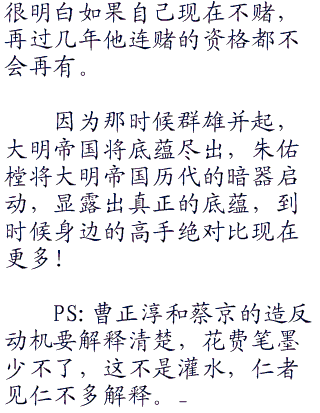 很明白如果自己现在不赌，
再过几年他连赌的资格都不
会再有。
因为那时候群雄并起，
大明帝国将底蕴尽出，朱佑
樘将大明帝国历代的暗器启
动，显露出真正的底蕴，到
时候身边的高手绝对比现在
更多！
PS: 曹正淳和蔡京的造反
动机要解释清楚，花费笔墨
少不了，这不是灌水，仁者
见仁不多解释。_